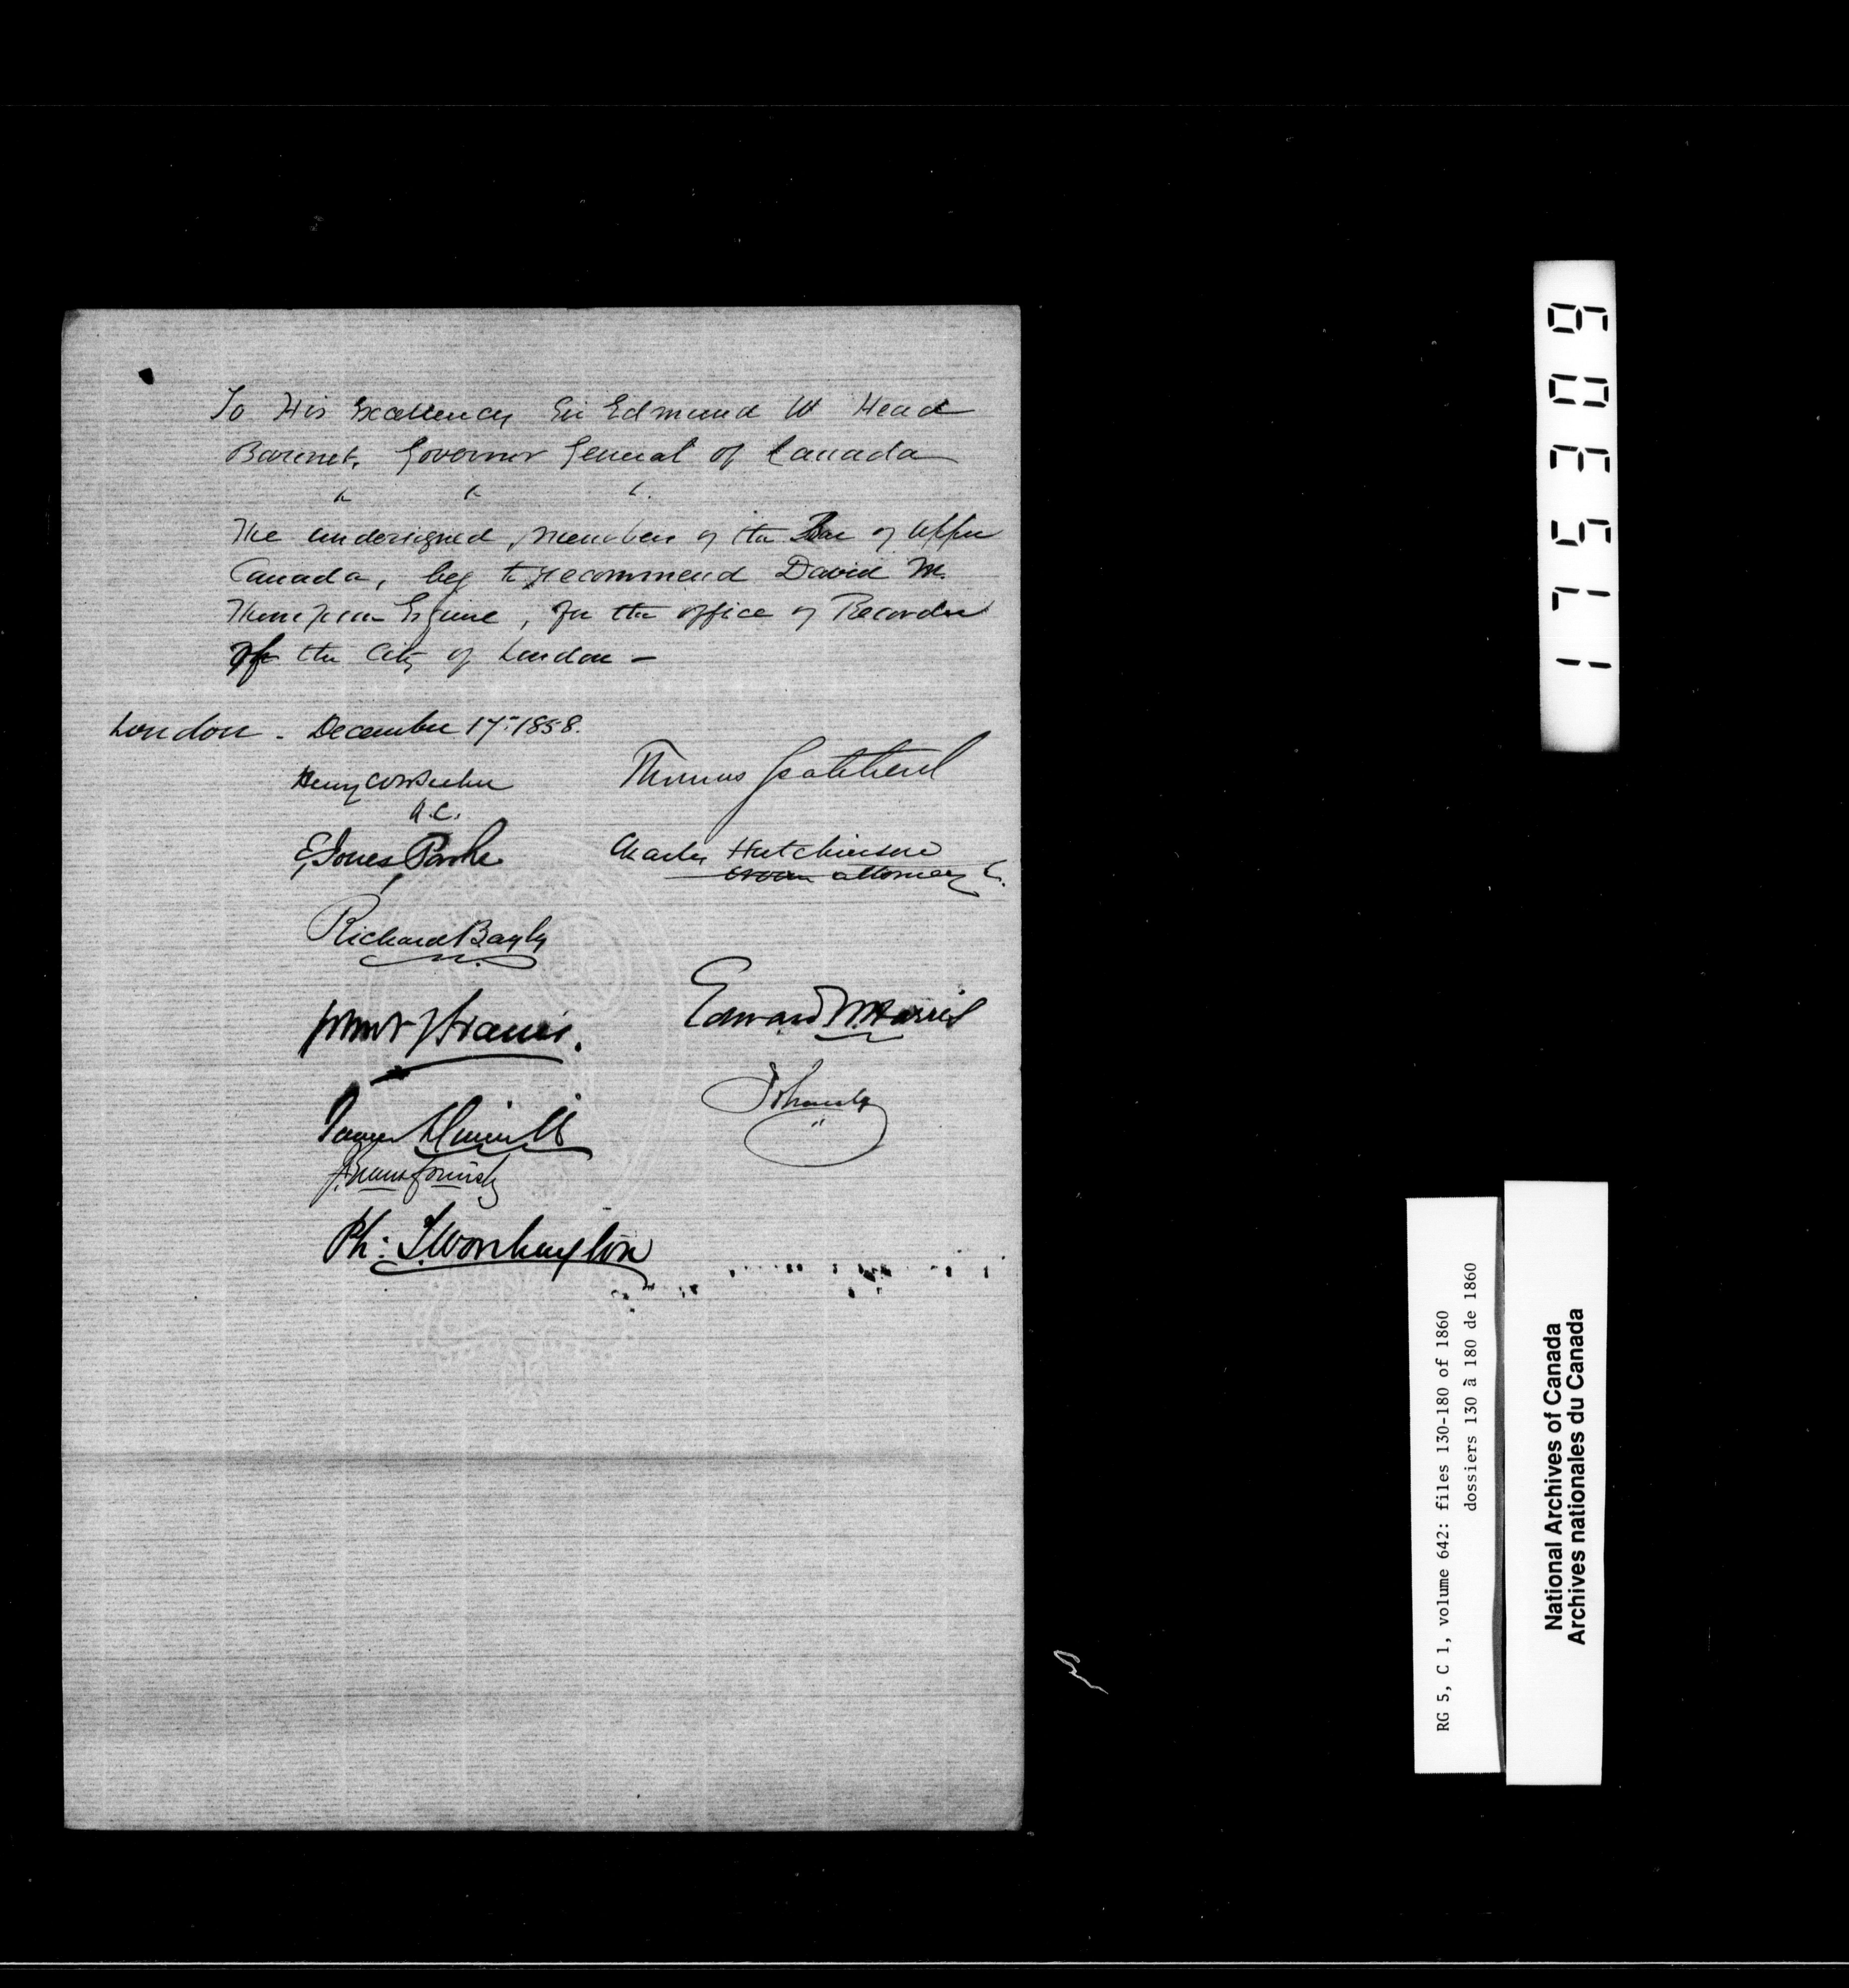 To His Excellency Sir Edmund W Head
Baronet, Governor General of Canada
" " "
The undersigned, members of the Bar of Upper
Canada, beg to recommend David M.
Thompson Esquire, for the office of Recorder
of the City of London -
London - December 17. 1858.
Henry
Q.C.
E Jones Parke
Richard Bayly
Thomas
Charles Hutchinson
Crown attorney
Edward W Harris
James
Ph: T. Worthington
175309
RG 5, C 1, volume 642: files 130-180 of 1860
dossiers 130 à 180 de 1860
National Archives of Canada
Archives nationales du Canada